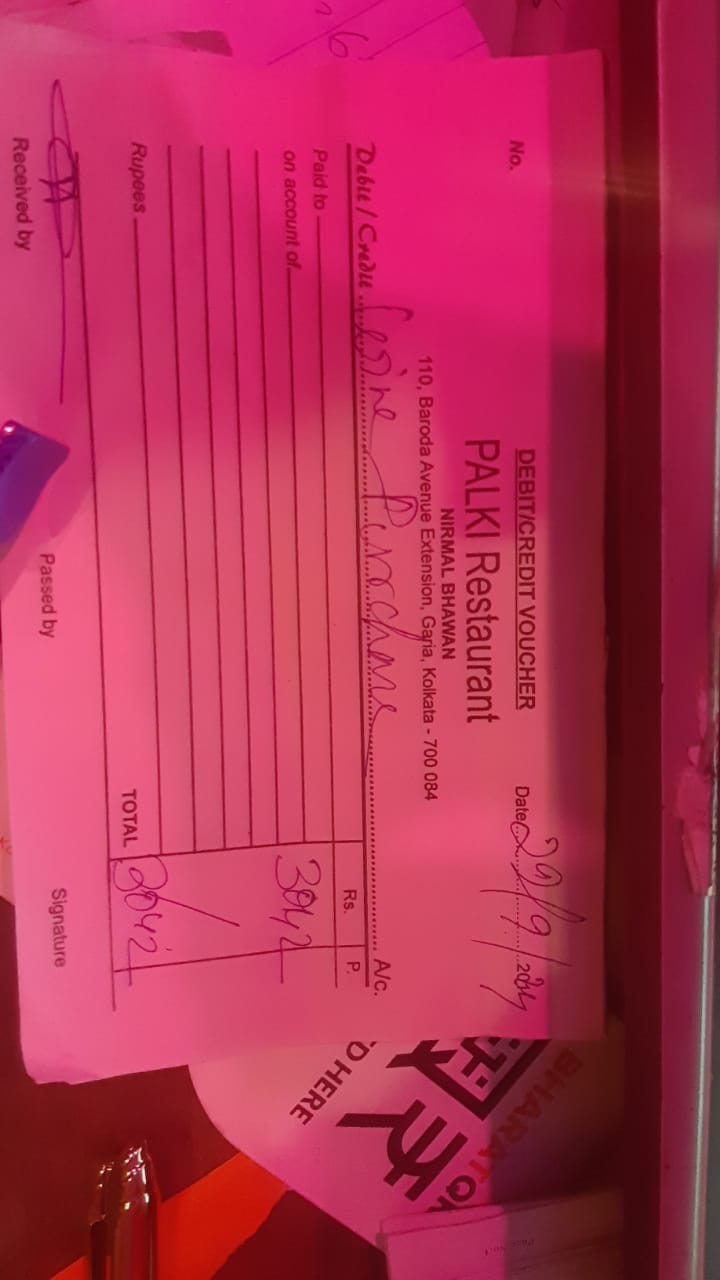 DEBIT/CREDIT VOUCHER
No.
Date 29/9/2024
PALKI Restaurant
NIRMAL BHAWAN
110, Baroda Avenue Extension, Garia, Kolkata - 700 084
Debit / Credit A/c.
Rs. P.
Paid to
on account of 3042
Rupees TOTAL 3042
Received by Passed by Signature
BHARAT
D HERE